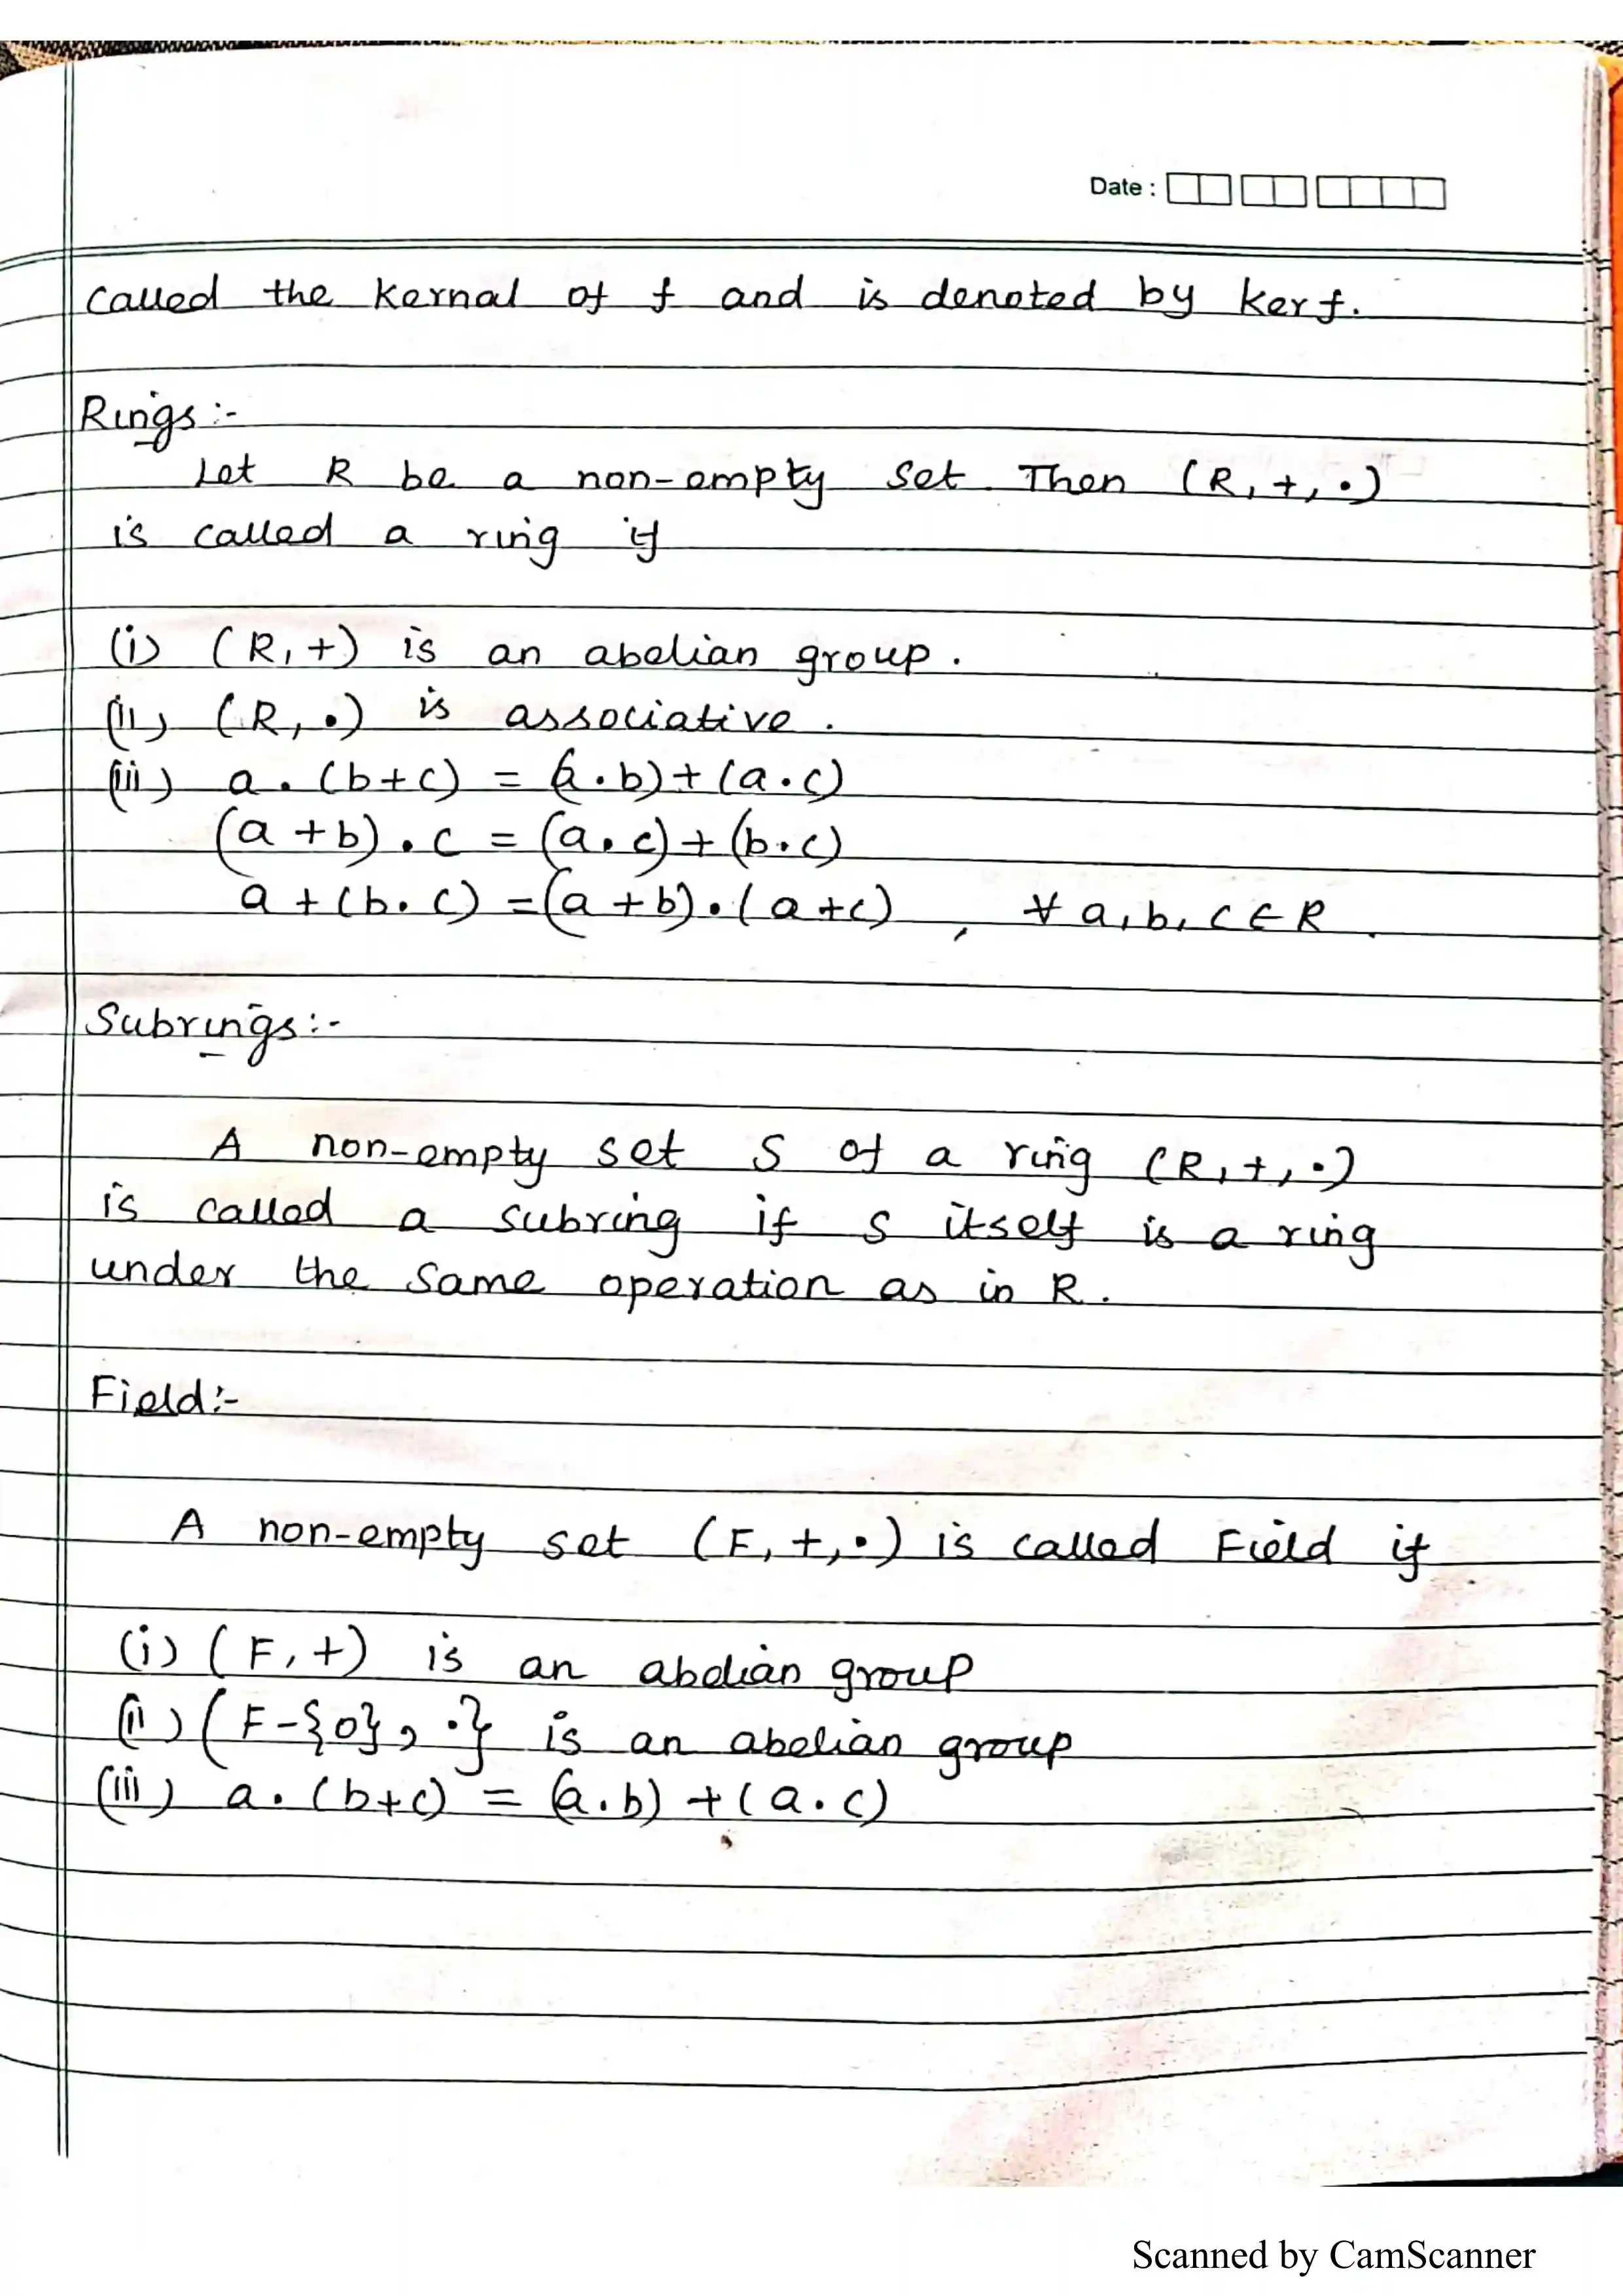 Date :
called the kernal of f and is denoted by ker f.
Rings :-
Let R be a non-empty set. Then (R, +, •)
is called a ring if
(i) (R, +) is an abelian group.
(ii) (R, •) is associative.
(iii) a • (b+c) = (a • b) + (a • c)
(a + b) • c = (a • c) + (b • c)
a + (b • c) = (a + b) • (a + c) , ∀ a, b, c ∈ R.
Subrings :-
A non-empty set S of a ring (R, +, •)
is called a subring if S itself is a ring
under the same operation as in R.
Field :-
A non-empty set (F, +, •) is called Field if
(i) (F, +) is an abelian group
(ii) (F - {0}, •} is an abelian group
(iii) a • (b+c) = (a • b) + (a • c)
Scanned by CamScanner